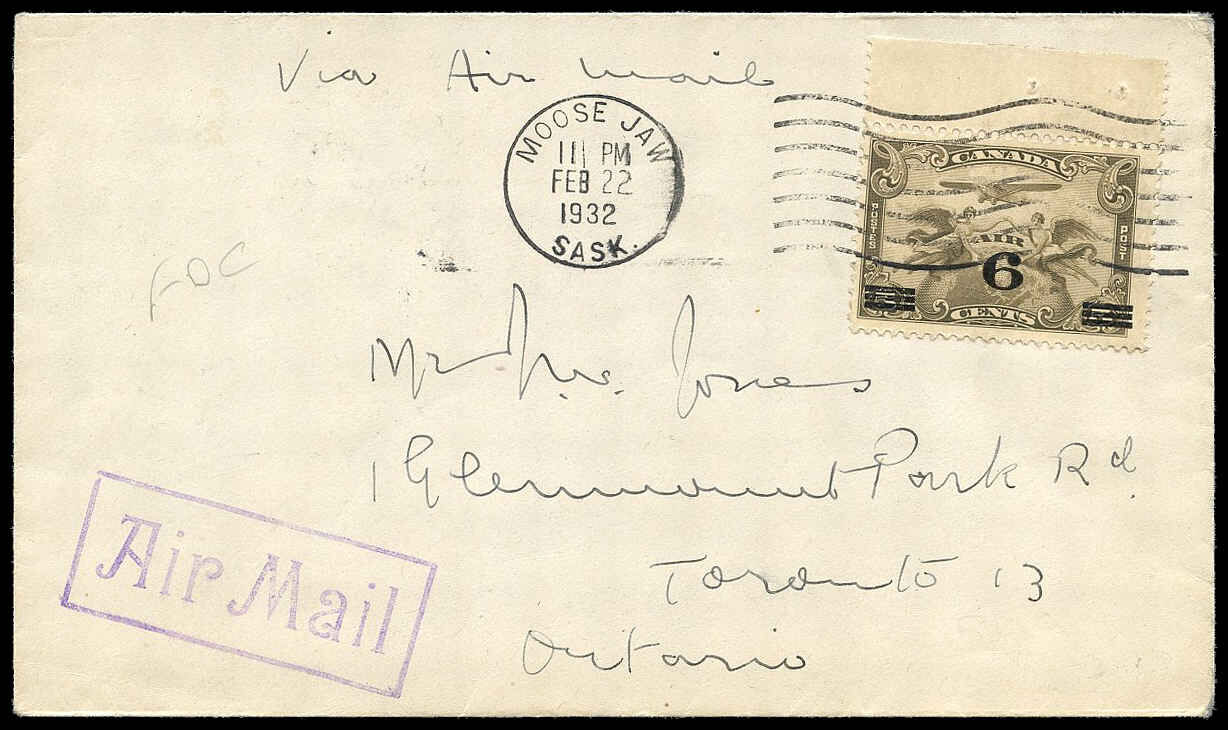 Via Air Mail
MOOSE JAW
11 PM
FEB 22
1932
SASK.
CANADA
POSTES
POST
AIR
6
CENTS
FDC
Mr
Jones
1 Glenmount Park Rd.
Toronto 13
Ontario
Air Mail